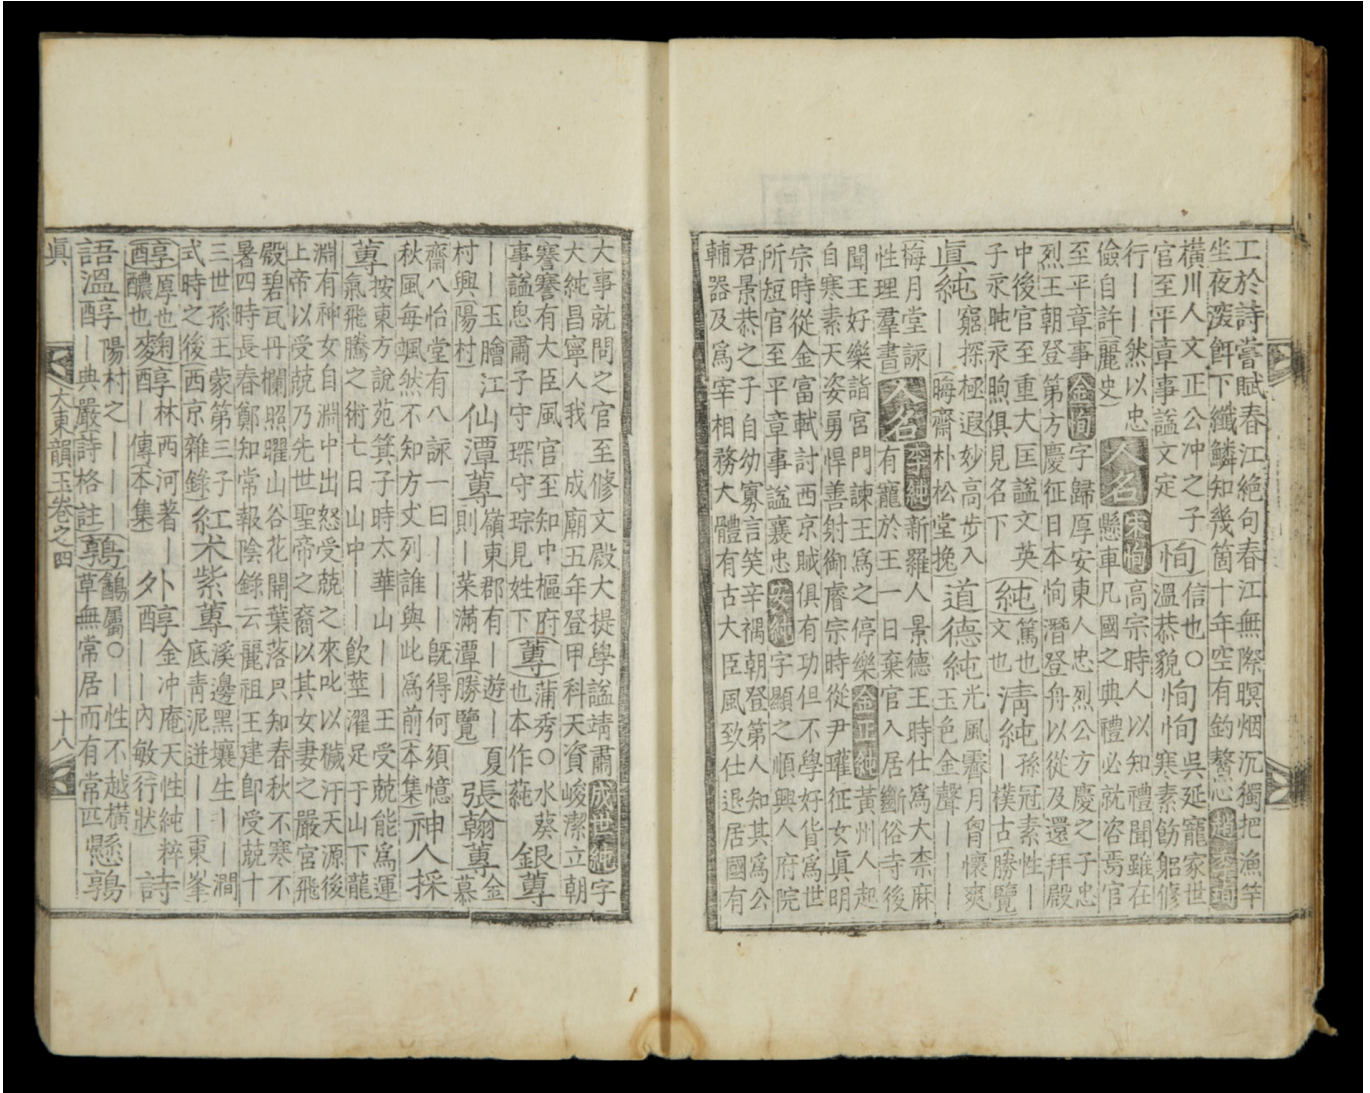 工於詩嘗賦春江絶句春江無際暝烟沉獨把漁竿
坐夜深餌下纖鱗知幾箇十年空有釣鰲心 趙李珣
橫川人文正公冲之子
官至平章事諡文定
恂
信也○
溫恭貌
恂恂
吳延寵家世
寒素飭躬修
行||然以忠
儉自許麗史)
人名 宋恂
高宗時人以知禮聞雖在
懸車凡國之典禮必就咨焉官
至平章事 金恂 字歸厚安東人忠烈公方慶之子忠
烈王朝登第方慶征日本恂潛登舟以從及還拜殿
中後官至重大匡諡文英
子永旽永煦俱見名下
純
篤也
文也
清純
孫冠素性|
|樸古勝覽
眞純
窮探極遐妙高步入
||(晦齋朴松堂挽)
道德純
光風霽月胷懷爽
玉色金聲|||
梅月堂詠
性理羣書
人名 李純
新羅人景德王時仕爲大柰麻
有寵於王一日棄官入居斷俗寺後
聞王好樂詣宮門諫王爲之停樂 金正純 黃州人起
自寒素天姿勇悍善射御睿宗時從尹瓘征女眞明
宗時從金富軾討西京賊俱有功但不學好貨爲世
所短官至平章事諡襄忠 安純 字顯之順興人府院
君景恭之子自幼寡言笑辛禑朝登第人知其爲公
輔器及爲宰相務大體有古大臣風致仕退居國有
大事就問之官至修文殿大提學諡靖肅 成世純 字
大純昌寧人我 成廟五年登甲科天資峻潔立朝
謇謇有大臣風官至知中樞府
事諡思肅子守琛守琮見姓下
蓴
蒲秀○水葵
也本作蒓
銀蓴
||玉膾江
村興(陽村)
仙潭蓴
嶺東郡有|遊|夏
則|菜滿潭勝覽)
張翰蓴
金
慕
齋八怡堂有八詠一曰|||旣得何須憶
秋風每颯然不知方丈列誰與此爲前(本集
神人採
蓴
按東方說苑箕子時太華山||王受兢能爲運
氣飛騰之術七日山中||飮莖濯足于山下龍
淵有神女自淵中出怒受兢之來叱以穢汙天源後
上帝以受兢乃先世聖帝之裔以其女妻之嚴宮飛
殿碧瓦丹欄照曜山谷花開葉落只知春秋不寒不
暑四時長春鄭知常報陰錄云麗祖王建卽受兢十
三世孫王蒙第三子
式時之後(西京雜錄)
紅朮紫蓴
溪邊黑壤生||澗
底靑泥迸||(東峯
醇
厚也
醲也
麴醇
林西河著|
|傳(本集)
外醇
金冲庵天性純粹
||內敏(行狀
詩
語溫醇
陽村之|||
|典嚴(詩格註)
鶉
鷂屬○|性不越橫
草無常居而有常匹
懸鶉
眞 大東韻玉卷之四 十八